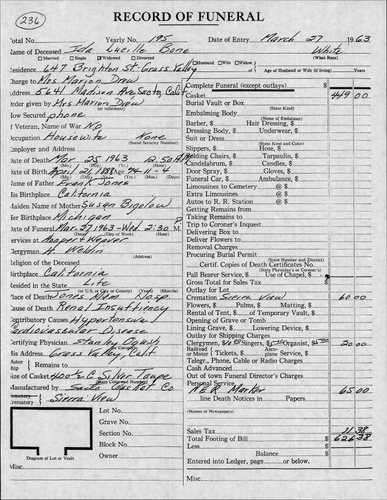 236
RECORD OF FUNERAL
Total No. Yearly No. 195 Date of Entry March 27 1963
Name of Deceased Ida Lucille Bone White
Married Single Widowed Divorced Husband Wife Widow (What Race)
Residence 647 Brighton St. Grass Valley Age of Husband or Wife (if living) Years
Charge to Mrs Marion Drew Complete Funeral (except outlays) $
Address 5641 Madison Ave Sacto, Calif Casket 449 00
Order given by Mrs Marion Drew Burial Vault or Box
(State Kind)
How Secured phone Embalming Body
(Name of Embalmer)
If Veteran, Name of War No Barber, $ Hair Dressing, $
Occupation Housewife None Dressing Body, $ Underwear, $
(Social Security Number) Suit or Dress
(State Kind and Color)
Employer and Address Slippers, $ Hose, $
Date of Death Mar 25 1963 12:50 A.M. Folding Chairs, $ Tarpaulin, $
Candelabrum, $ Candles, $
Date of Birth Apr 21 1888 Age 74-11-4 Door Spray, $ Gloves, $
Name of Father Frank Jones Funeral Car, $ Ambulance, $
His Birthplace California Limousines to Cemetery @ $
Limousines Extra @ $
Maiden Name of Mother Susan Bigelow Autos to R. R. Station @ $
Her Birthplace Michigan Getting Remains from
Taking Remains to
Date of Funeral Mar. 27 1963-Wed. 2:30 P.M. Trip to Coroner's Inquest
Services at Hooper & Weaver Delivering Box to
Deliver Flowers to
Clergyman H. Removal Charges
(Address)
Religion of Deceased Procuring Burial Permit
(State Number and District)
Birthplace California Certif. Copies of Death Certificates No.
(State Physician's or Coroner's)
Resided in the State Life Pall Bearer Service, $ Use of Chapel, $
Gross Total for Sales Tax $
Place of Death Jones Mem Hosp. Outlay for Lot
Cause of Death Renal Insuffiency Cremation Sierra View 60 00
Contributory Causes Hypertensive Flowers, $ Palms, $ Matting, $
Cardiovascular Disease Rental of Tent, $ of Temporary Vault, $
Opening of Grave or Tomb
Certifying Physician Stanley Lining Grave, $ Lowering Device, $
Outlay for Shipping Charges
His Address Grass Valley, Calif Clergymen, $ Singers, $ Organist, $ 20 00
Railroad or Motor Tickets, $ Aeroplane Service, $
Remains to Telegr., Phone, Cable or Radio Charges
Cash Advanced
Size of Casket Silver Taupe Out of town Funeral Director's Charges
Manufactured by Sacto Casket Co Personal Service
Marker 65 00
Sierra View line Death Notices in Papers
(Names of Newspapers)
Lot No.
Grave No.
Section No. Sales Tax 
Block No. Total Footing of Bill $
Less $
Diagram of Lot or Vault Owner Balance $
Entered into Ledger, page or below.
Misc. Misc.